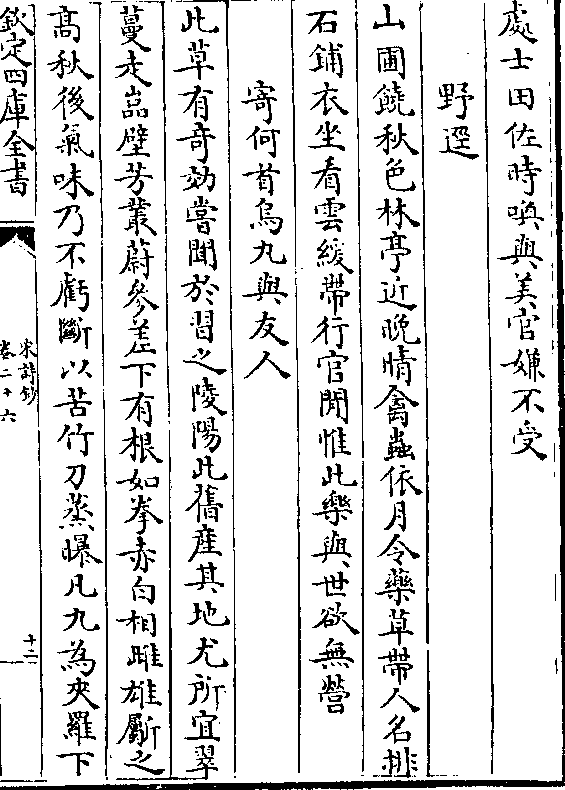 處士田佐時喚與美官嫌不受
野逕
山圃饒秋色林亭近晚晴禽蟲依月令藥草帶人名排
石鋪衣坐看雲緩帶行官閒惟此樂與世欲無營
寄何首烏丸與友人
此草有奇効嘗聞於習之陵陽此舊産其地尤所宜翠
蔓走嵓壁芳叢蔚參差下有根如拳赤白相雌雄斸之
髙秋後氣味乃不虧斷以苦竹刀蒸曝凡九為夾羅下
欽定四庫全書
宋詩鈔
卷二十六
十二